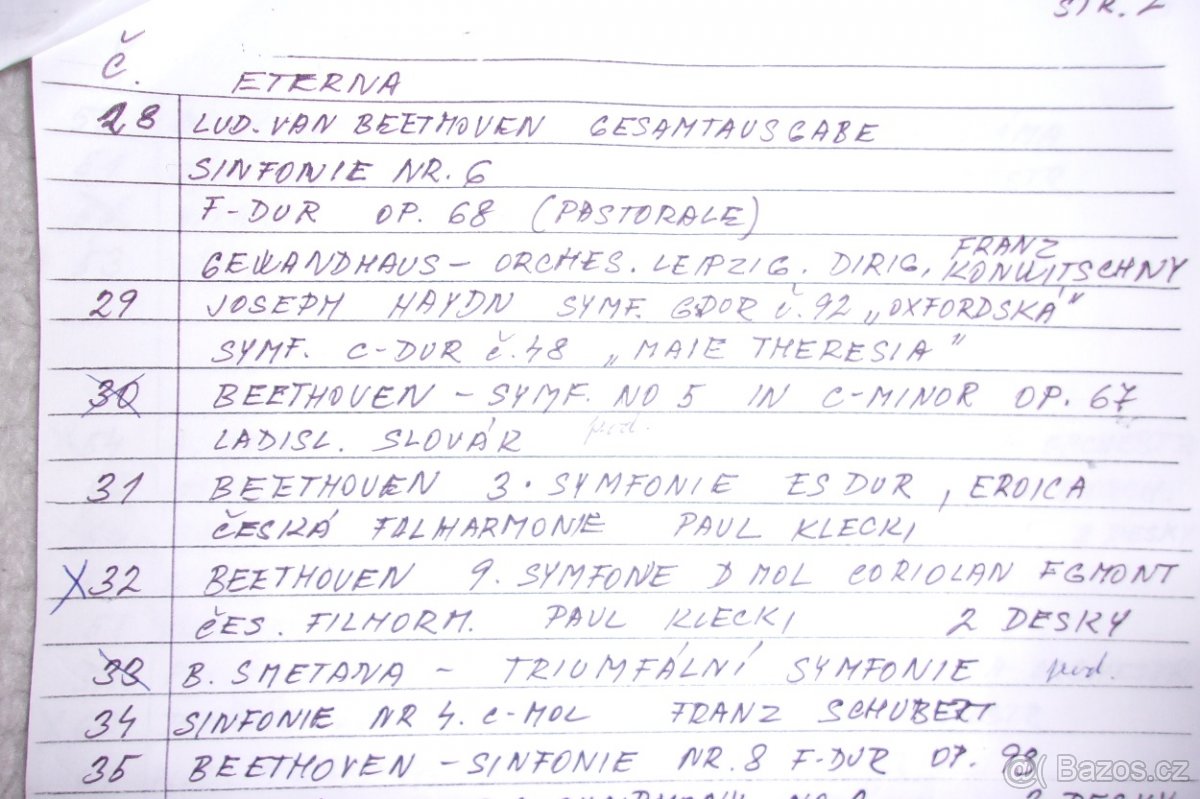 STR. 2
Č.
ETERNA
28 LUD. VAN BEETHOVEN GESAMTAUSGABE
SINFONIE NR. 6
F-DUR OP. 68 (PASTORALE)
GEWANDHAUS - ORCHES. LEIPZIG. DIRIG. FRANZ KONWITSCHNY
29 JOSEPH HAYDN SYMF. GDOR Č. 92 „OXFORDSKÁ"
SYMF. C-DUR Č. 48 „MAIE THERESIA"
30 BEETHOVEN - SYMF. NO 5 IN C-MINOR OP. 67
LADISL. SLOVÁR prod.
31 BEETHOVEN 3. SYMFONIE ES DUR, EROICA
ČESKÁ FILHARMONIE PAUL KLECKI
X 32 BEETHOVEN 9. SYMFONE D MOL CORIOLAN EGMONT
ČES. FILHORM. PAUL KLECKI 2 DESKY
33 B. SMETANA - TRIUMFÁLNÍ SYMFONIE prod.
34 SINFONIE NR 4. C-MOL FRANZ SCHUBERT
35 BEETHOVEN - SINFONIE NR. 8 F-DUR OP. 93
2 DESKY
@ Bazos.cz